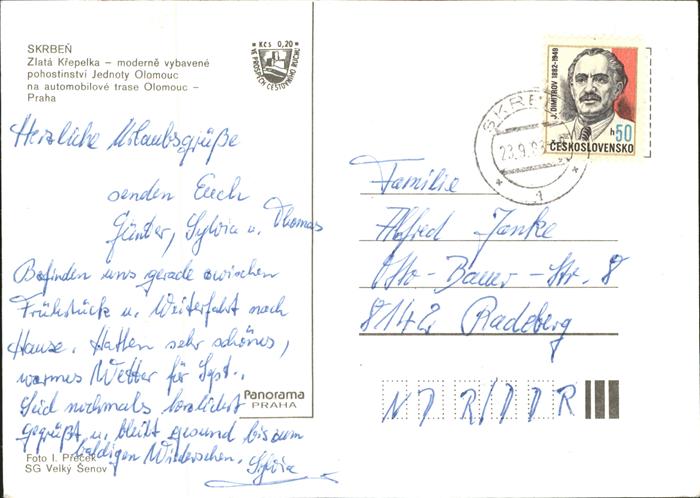 SKRBEŇ
Zlatá Křepelka – moderně vybavené
pohostinství Jednoty Olomouc
na automobilové trase Olomouc –
Praha
Kčs 0,20
VE PROSPĚCH CESTOVNÍHO RUCHU
Herzliche Urlaubsgrüße
senden Euch
Günter, Sylvia u. Thomas
Befinden uns gerade zwischen
Frühstück u. Weiterfahrt nach
Hause. Hatten sehr schönes,
warmes Wetter für Sept..
Seid nochmals herzlichst
gegrüßt u. bleibt gesund bis zum
baldigen Wiedersehen. Sylvia
Panorama
PRAHA
Foto I. Přeček
SG Velký Šenov
J. DIMITROV 1882-1949
h 50
ČESKOSLOVENSKO
23.9.83
1
Familie
Alfred Janke
Otto-Bauer-Str. 8
8142 Radeberg
NDR/DDR